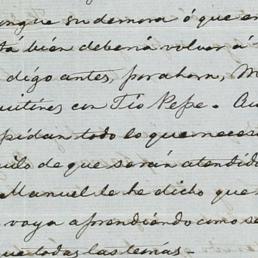 su demora ó que en
tá bién deberia volver á
digo antes, por ahora, M
quitines con Tio Pepe. Au
pidan todo lo que neces
de que serán atendido
Manuel le he dicho que
vaya aprendiendo como se
que todas las teorías.